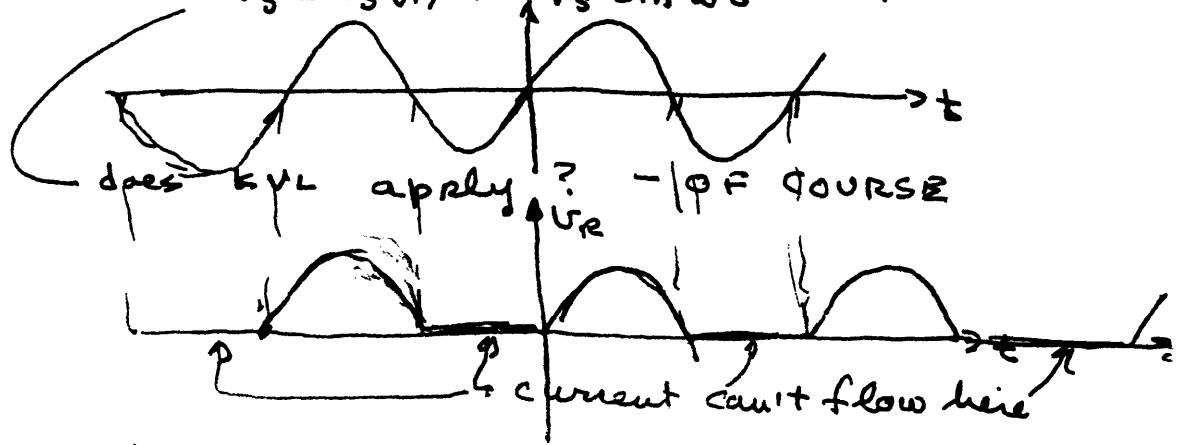 t
does KVL apply ? - OF COURSE
VR
t
current can't flow here